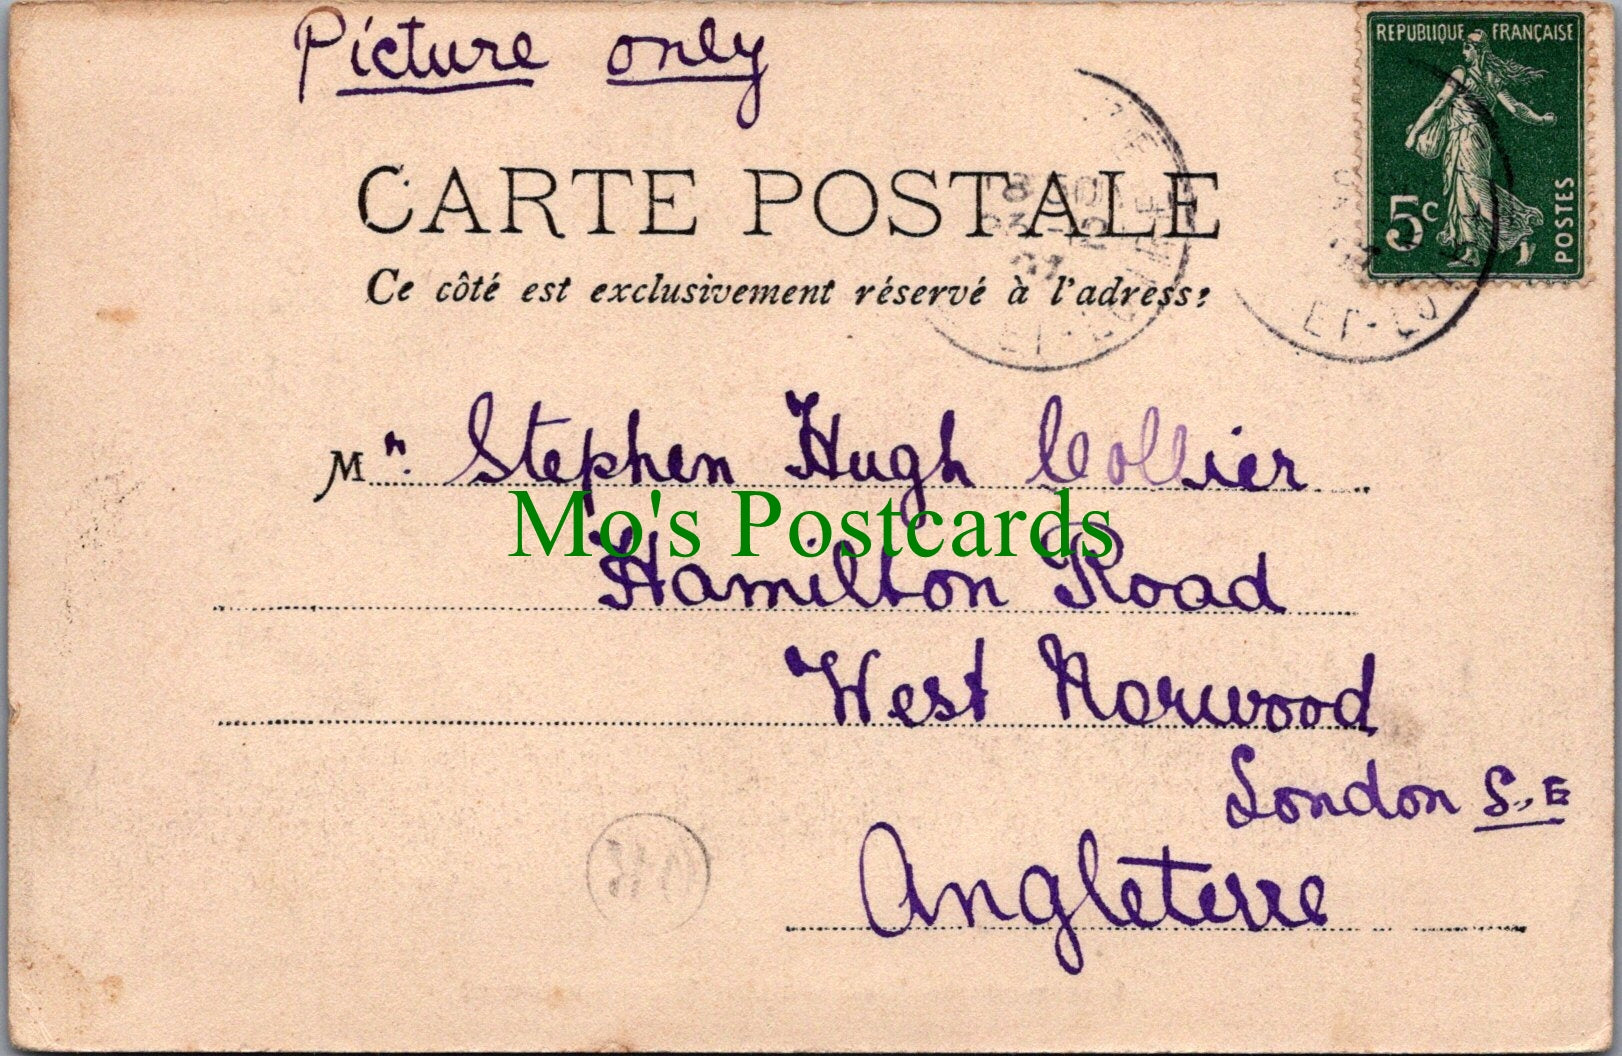 Picture only
REPUBLIQUE FRANÇAISE
5c
POSTES
CARTE POSTALE
Ce côté est exclusivement réservé à l'adresse
ET-LO
Mr. Stephen Hugh Collier
Mo's Postcards
Hamilton Road
West Norwood
London S.E
Angleterre